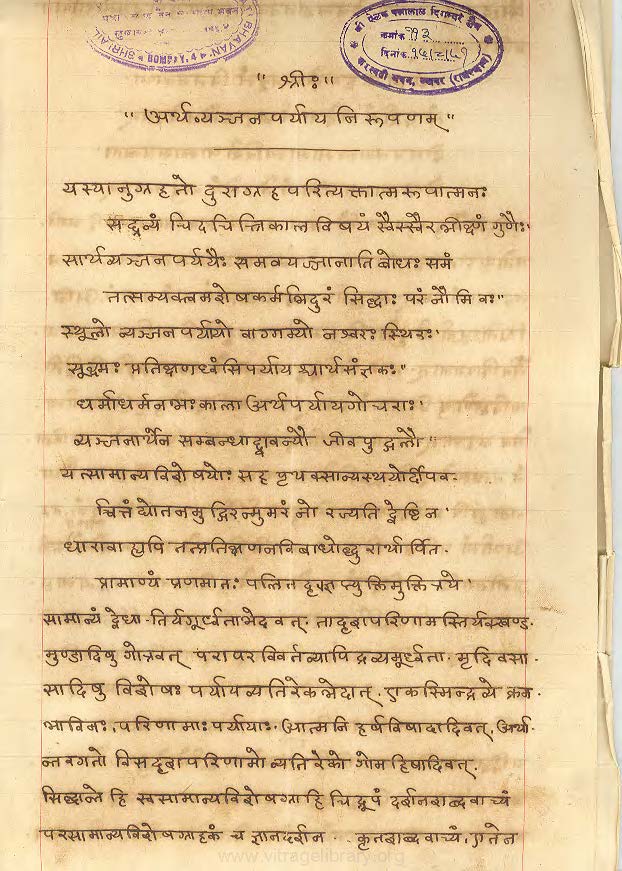 BHAVAN
BOMBAY, 4
क्रमांक ९१३
दिनांक १५/८/८१
सरस्वती भवन, ब्यावर (राजस्थान)
" श्रीः "
" अर्थव्यञ्जनपर्यायनिरूपणम् "
यस्यानुग्रहतो दुराग्रहपरित्यक्तात्मरूपात्मनः
सद्द्रव्यं चिदचित्त्रिकालविषयं स्वैस्स्वैरभीक्ष्णं गुणैः'
सार्थव्यञ्जनपर्ययैः समवयज्जानाति बोधः समं
तत्सम्यक्त्वमशेषकर्मभिदुरं सिद्धाः परं नौमि वः"
स्थूलो व्यञ्जनपर्यायो वाग्गम्यो नश्वरः स्थिरः'
सूक्ष्मः प्रतिक्षणध्वंसिपर्याय श्चार्थसंज्ञकः"
धर्माधर्मनभःकाला अर्थपर्यायगोचराः'
व्यञ्जनार्थेन सम्बन्धाद्द्वावन्यौ जीवपुद्गलौ"
यत्सामान्यविशेषयोः सह पृथक्सान्यस्थयोर्दीपव-
च्चित्तं द्योतनमुद्गिरन्मुमरं नो रज्यति द्वेष्टि न'
धारावाह्यपि तत्प्रतिक्षणनवि
प्रामाण्यं प्रणमात
सामान्यं द्वेधा - तिर्यगूर्ध्वताभेदवत्. तादृशपरिणामस्तिर्यक्खण्ड-
मुण्डादिषु गोत्ववत् परापरविवर्तव्यापिद्रव्यमूर्ध्वता. मृदिवस्था-
सादिषु विशेषः पर्यायव्यतिरेकभेदात्. एकस्मिन्द्रव्ये क्रम-
भाविनः परिणामाः पर्यायाः. आत्मनि हर्षविषादादिवत्. अर्था-
न्तरगतो विसदृशपरिणामो व्यतिरेको गोमहिषादिवत्.
सिद्धान्ते हि स्वसामान्यविशेषग्राहि चिद्रूपं दर्शनशब्दवाच्यं
परसामान्यविशेषग्राहकं च ज्ञानदर्शन .. कृतशब्दवाच्यं, एतेन
www.vitragelibrary.org